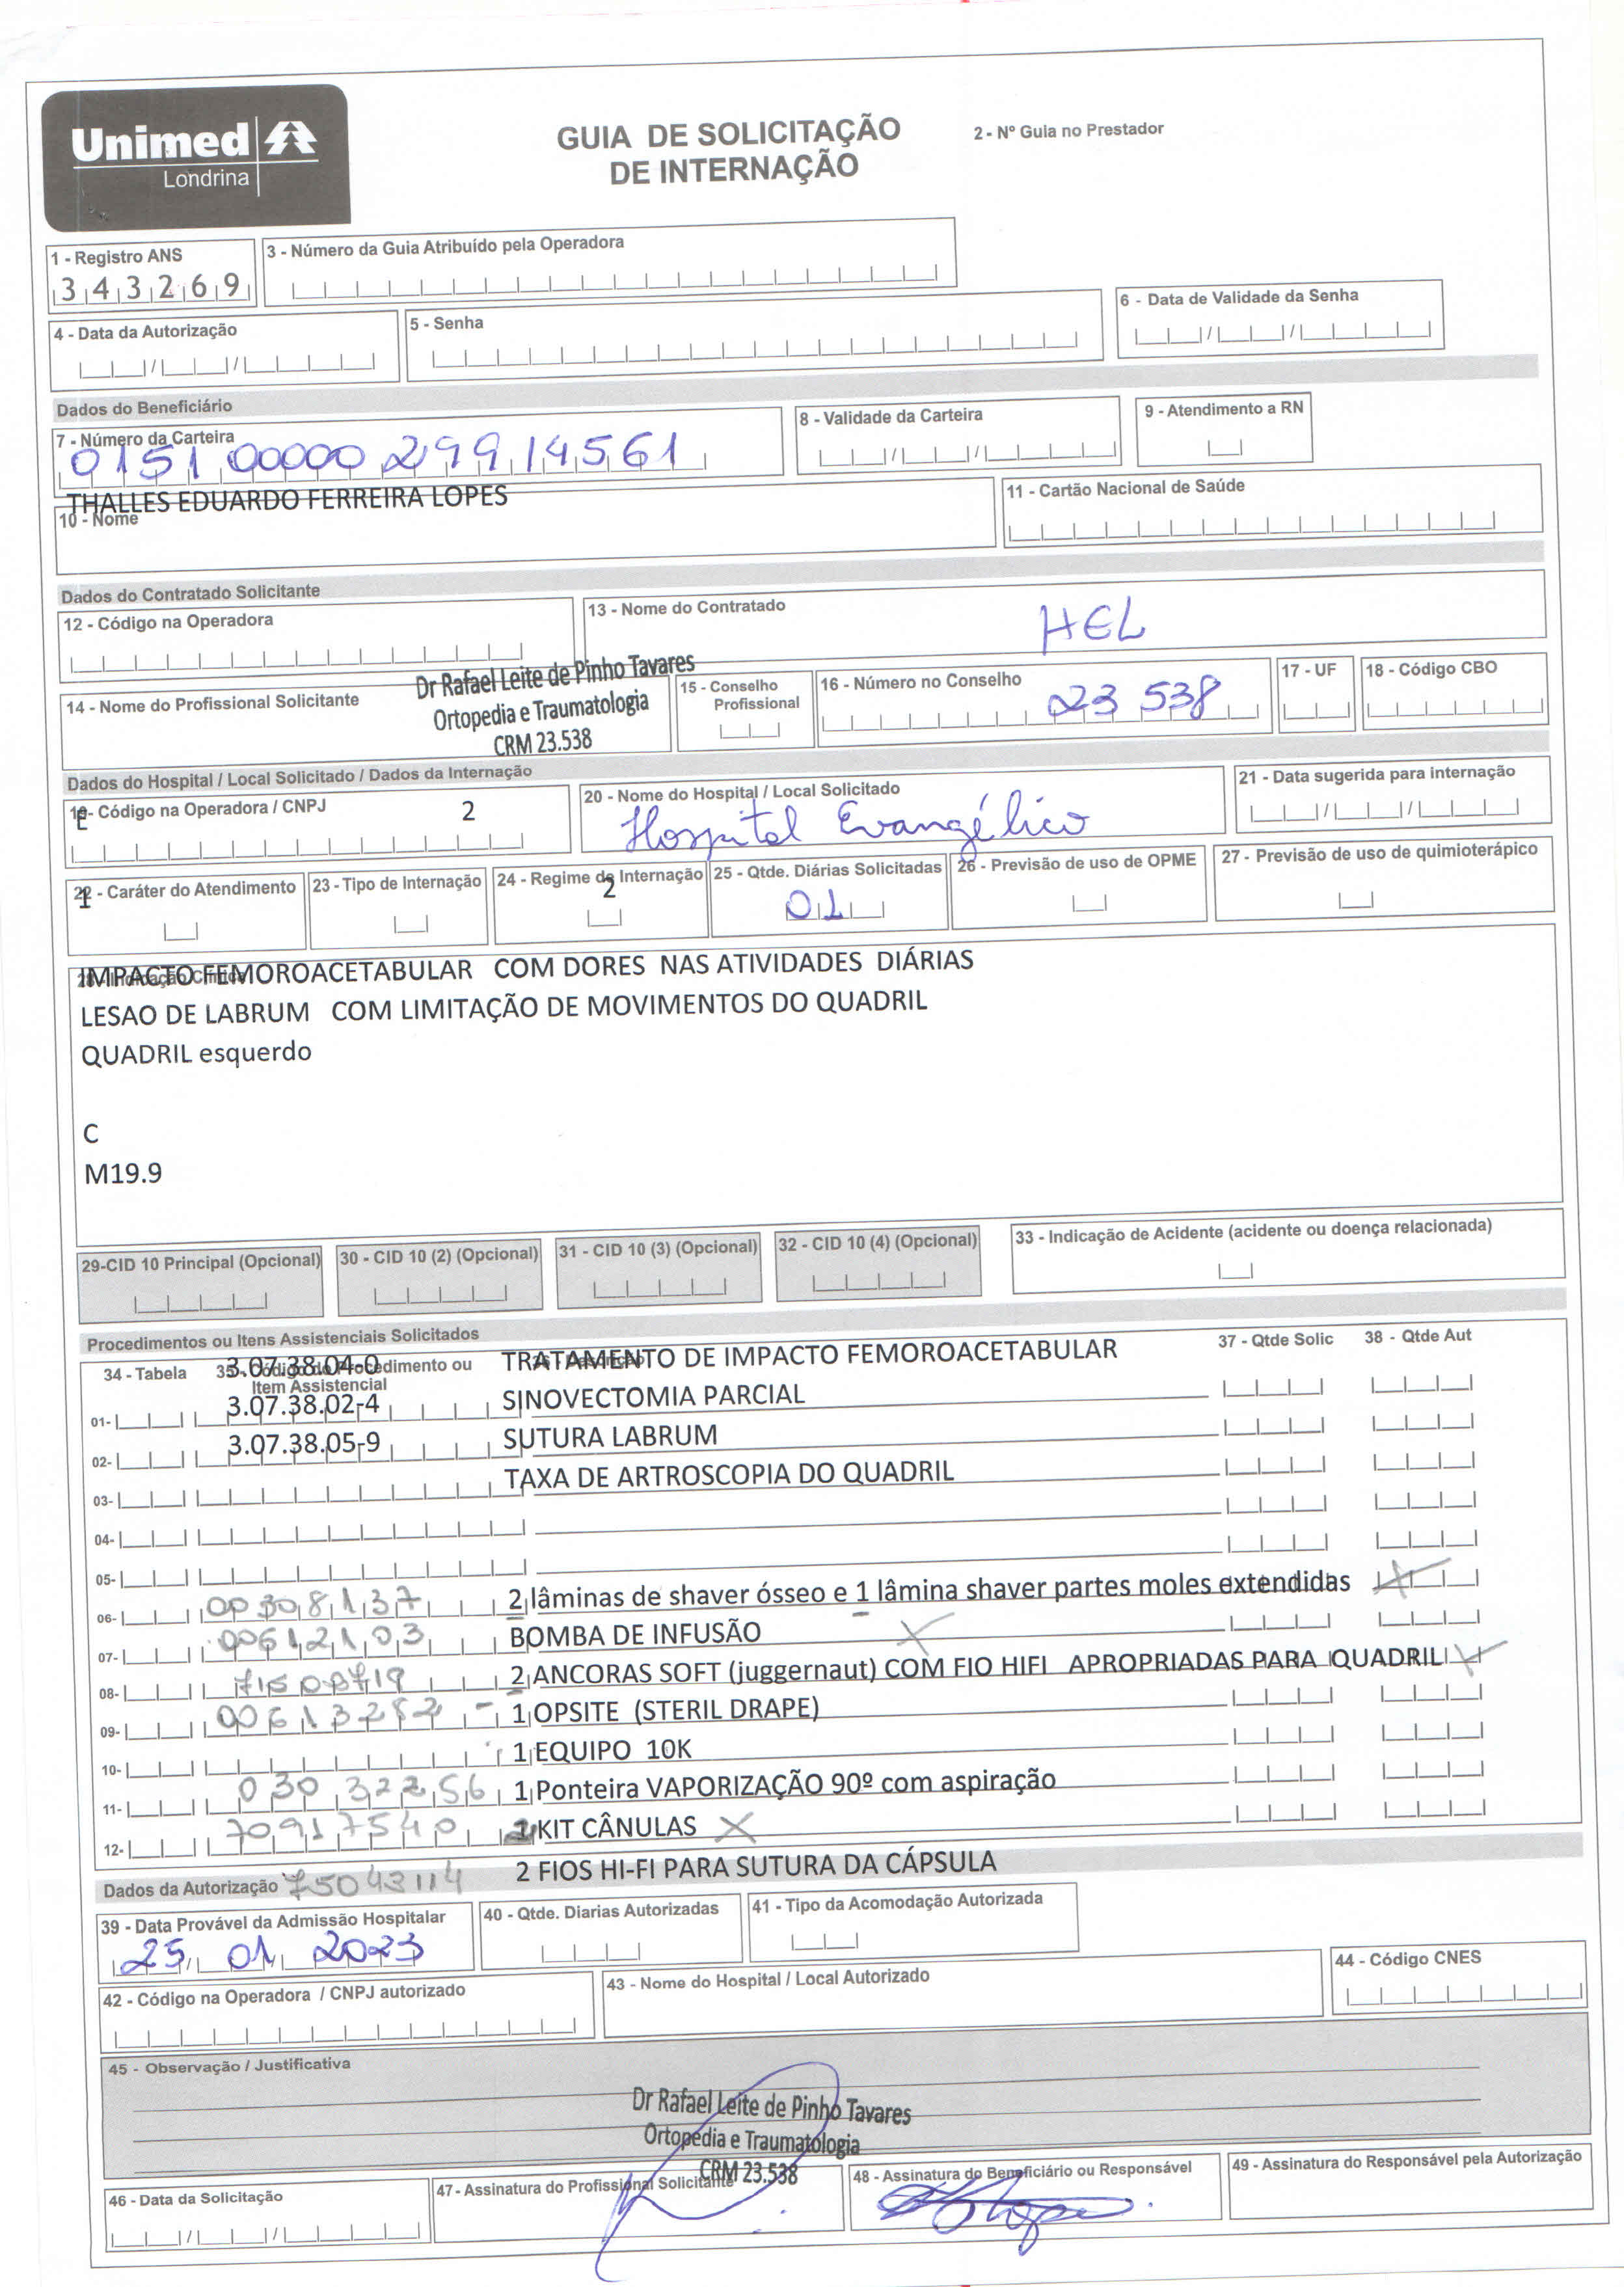 Unimed
Londrina
GUIA DE SOLICITAÇÃO
DE INTERNAÇÃO
2 - Nº Guia no Prestador
1 - Registro ANS
343269
3 - Número da Guia Atribuído pela Operadora
4 - Data da Autorização
5 - Senha
6 - Data de Validade da Senha
Dados do Beneficiário
7 - Número da Carteira
0151 00000 29914561
8 - Validade da Carteira
9 - Atendimento a RN
THALLES EDUARDO FERREIRA LOPES
10 - Nome
11 - Cartão Nacional de Saúde
Dados do Contratado Solicitante
12 - Código na Operadora
13 - Nome do Contratado
HEL
14 - Nome do Profissional Solicitante
Dr Rafael Leite de Pinho Tavares
Ortopedia e Traumatologia
CRM 23.538
15 - Conselho Profissional
16 - Número no Conselho
23 538
17 - UF
18 - Código CBO
Dados do Hospital / Local Solicitado / Dados da Internação
19 - Código na Operadora / CNPJ
E 2
20 - Nome do Hospital / Local Solicitado
Hospital Evangélico
21 - Data sugerida para internação
22 - Caráter do Atendimento
1
23 - Tipo de Internação
24 - Regime de Internação
2
25 - Qtde. Diárias Solicitadas
01
26 - Previsão de uso de OPME
27 - Previsão de uso de quimioterápico
28 - Indicação Clínica
IMPACTO FEMOROACETABULAR COM DORES NAS ATIVIDADES DIÁRIAS
LESAO DE LABRUM COM LIMITAÇÃO DE MOVIMENTOS DO QUADRIL
QUADRIL esquerdo
C
M19.9
29-CID 10 Principal (Opcional)
30 - CID 10 (2) (Opcional)
31 - CID 10 (3) (Opcional)
32 - CID 10 (4) (Opcional)
33 - Indicação de Acidente (acidente ou doença relacionada)
Procedimentos ou Itens Assistenciais Solicitados
34 - Tabela
35 - Código do Procedimento ou
Item Assistencial
36 - Descrição
37 - Qtde Solic
38 - Qtde Aut
3.07.38.04-0 TRATAMENTO DE IMPACTO FEMOROACETABULAR
01- 3.07.38.02-4 SINOVECTOMIA PARCIAL
02- 3.07.38.05-9 SUTURA LABRUM
03- TAXA DE ARTROSCOPIA DO QUADRIL
04-
05-
06- 00308137 2 lâminas de shaver ósseo e 1 lâmina shaver partes moles extendidas
07- 00612103 BOMBA DE INFUSÃO X
08- 71500719 2 ANCORAS SOFT (juggernaut) COM FIO HIFI APROPRIADAS PARA QUADRIL
09- 00613282 - 1 OPSITE (STERIL DRAPE)
10- 1 EQUIPO 10K
11- 03032256 1 Ponteira VAPORIZAÇÃO 90º com aspiração
12- 70917540 KIT CÂNULAS X
Dados da Autorização 75043114 2 FIOS HI-FI PARA SUTURA DA CÁPSULA
39 - Data Provável da Admissão Hospitalar
25 01 2023
40 - Qtde. Diarias Autorizadas
41 - Tipo da Acomodação Autorizada
42 - Código na Operadora / CNPJ autorizado
43 - Nome do Hospital / Local Autorizado
44 - Código CNES
45 - Observação / Justificativa
Dr Rafael Leite de Pinho Tavares
Ortopedia e Traumatologia
CRM 23.538
46 - Data da Solicitação
47 - Assinatura do Profissional Solicitante
48 - Assinatura do Beneficiário ou Responsável
49 - Assinatura do Responsável pela Autorização